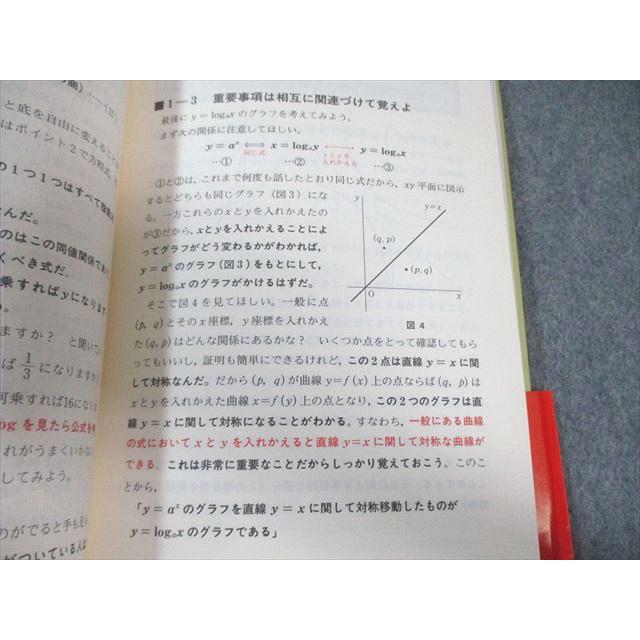 の商)
と底を自由に変えること
はポイント2で方程式
の1つ1つはすべて
なんだ。
のはこの同値関係であ
くべき式だ。
乗すればyになります
ますか? と聞いて
ば 1/3 になりますか
何乗すれば16になり
logを見たら公式を
れがうまくいかな
してみよう。
のがでると手も足
がついている人は
■1-3 重要事項は相互に関連づけて覚えよ
最後に y=logₐx のグラフを考えてみよう。
まず次の関係に注意してほしい。
y=aˣ ⟺ x=logₐy ⟷ y=logₐx
同じ式 xとyを
入れかえる
…① …② …③
①と②は、これまで何度も話したとおり同じ式だから、xy平面に図示
するとどちらも同じグラフ(図3)にな
る。一方これらのxとyを入れかえたの
が③だから、xとyを入れかえることによ
ってグラフがどう変わるかがわかれば、
y=aˣのグラフ(図3)をもとにして、
y=logₐxのグラフがかけるはずだ。
そこで図4を見てほしい。一般に点
(p, q)とそのx座標, y座標を入れかえ
y
y=x
(q, p)
(p, q)
O
x
図4
た(q, p)はどんな関係にあるかな? いくつか点をとって確認してもら
ってもいいし、証明も簡単にできるけれど、この2点は直線y=xに関
して対称なんだ。だから(p, q)が曲線y=f(x)上の点ならば(q, p)は
xとyを入れかえた曲線x=f(y)上の点となり、この2つのグラフは直
線y=xに関して対称になることがわかる。すなわち、一般にある曲線
の式においてxとyを入れかえると直線y=xに関して対称な曲線が
できる。これは非常に重要なことだからしっかり覚えておこう。このこ
とから、
「y=aˣのグラフを直線y=xに関して対称移動したものが
y=logₐxのグラフである」